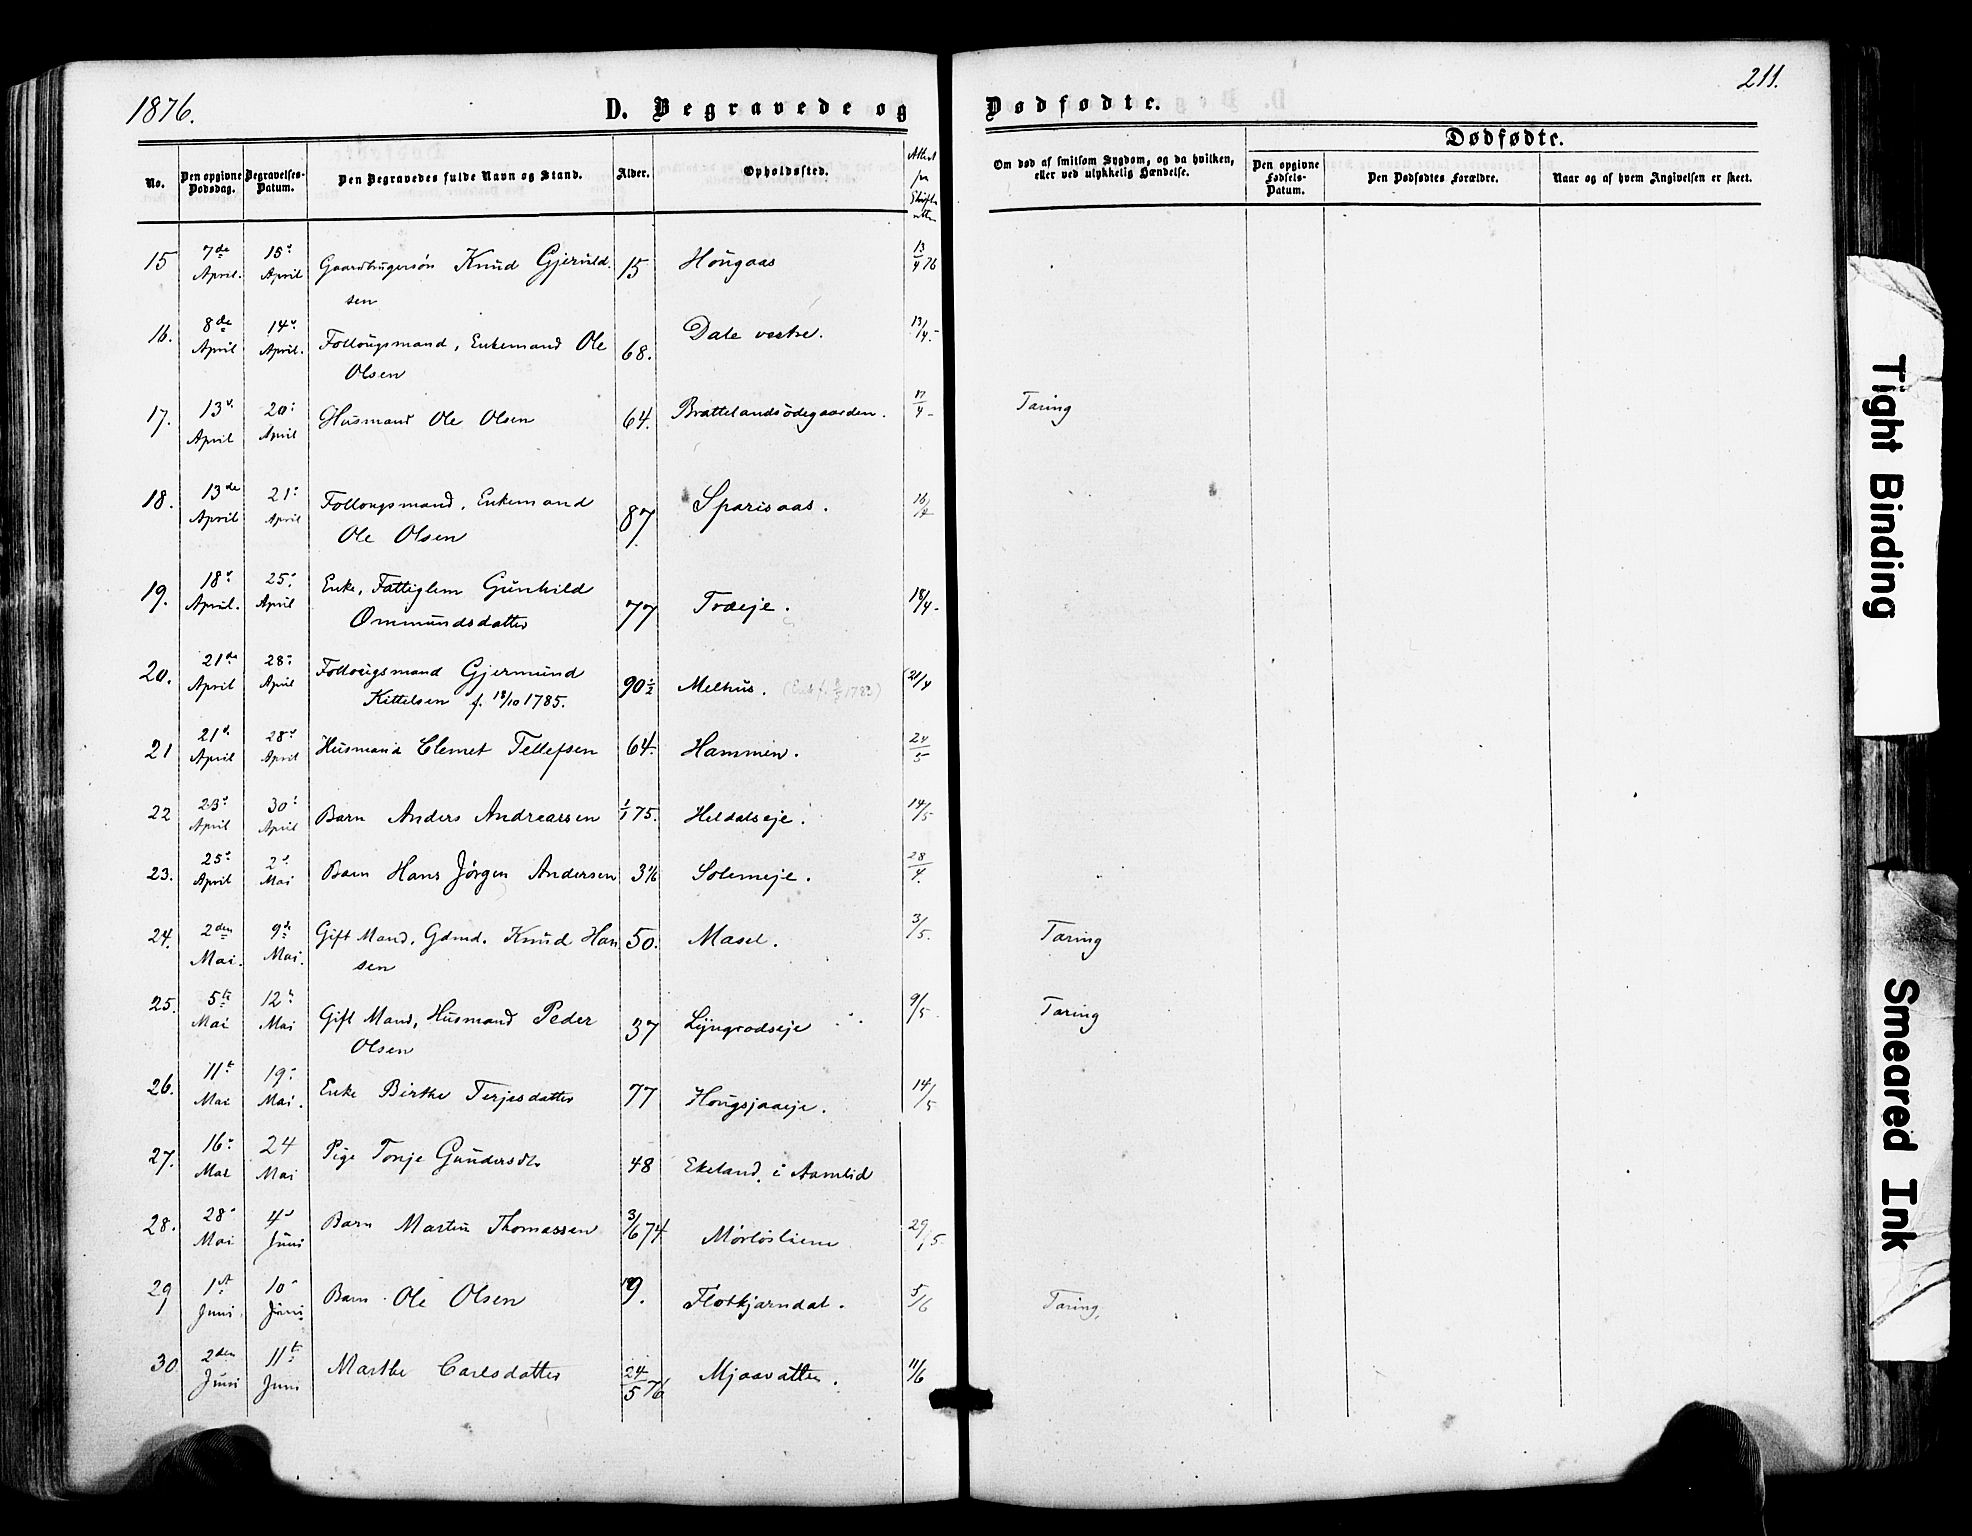 1876.
D. Begravede og
Dødfødte.
211.
No.
Den opgivne Dødsdag.
Begravelses-Datum.
Den Begravedes fulde Navn og Stand.
Alder.
Opholdssted.
Attest
Om død af smitsom Sygdom, og da hvilken, eller ved ulykkelig Hændelse.
Dødfødte.
Den opgivne Fødsels-Datum.
Den Dødfødtes Forældre.
Naar og af hvem Angivelsen er skeet.
15 7de April. 15 April Gaardbrugersøn Knud Gjeruld. 15 Hougaas 13/4 76
sen
16. 8de April 14 April. Follougsmand, Enkemand Ole 68. Dale vestre. 13/4.-
Olsen
17. 13 April 20 April Husmand Ole Olsen 64. Brattelandsödegaarden. 17/4- Tæring
18. 13de April 21 April Follougsmand, Enkemand 87. Sparisaas.
Ole Olsen
19. 18 April. 25 April Enke, Fattiglem Gunhild 77 Træeje. 18/4-
Ommundsdatter
20. 21de April 28 April Follougsmand Gjermund 90 1/2 Melhus. 21/4
Kittelsen f. 18/10 1785.
21 21 April 28 April Husmand Clemet Tellefsen 64. Hammen. 24/5
22 23 April 30 April Barn Anders Andreassen 1/1 75. Heldalseje. 14/5
23. 25 April 2 Mai Barn Hans Jørgen Andersen Solemeje. 28/4.
24. 2den Mai. 9de Mai. Gift Mand, Gdmd. Knud Han 50. Masel. 3/5. Tæring
sen
25. 5te Mai 12 Mai Gift Mand, Husmand Peder 37 Lyngrodseje 9/5. Tæring
Olsen
26. 11te Mai 19 Mai. Enke Birthe Terjesdatter 77 Hougsjaaeje. 14/5
27. 16 Mai 24 Mai Pige Tonje Gundersdtr 48 Ekeland i Aamlid
28. 28 Mai 4 Juni Barn Martin Thomassen 3/6 74. 29/5.
29 1st Juni. 10 Juni Barn Ole Olsen 9. 5/6 Tæring.
30 2den Juni 11te Juni Marthe Carlsdatter 24/5 76 Mjaavatten. 11/6
Tight Binding
Smeared Ink